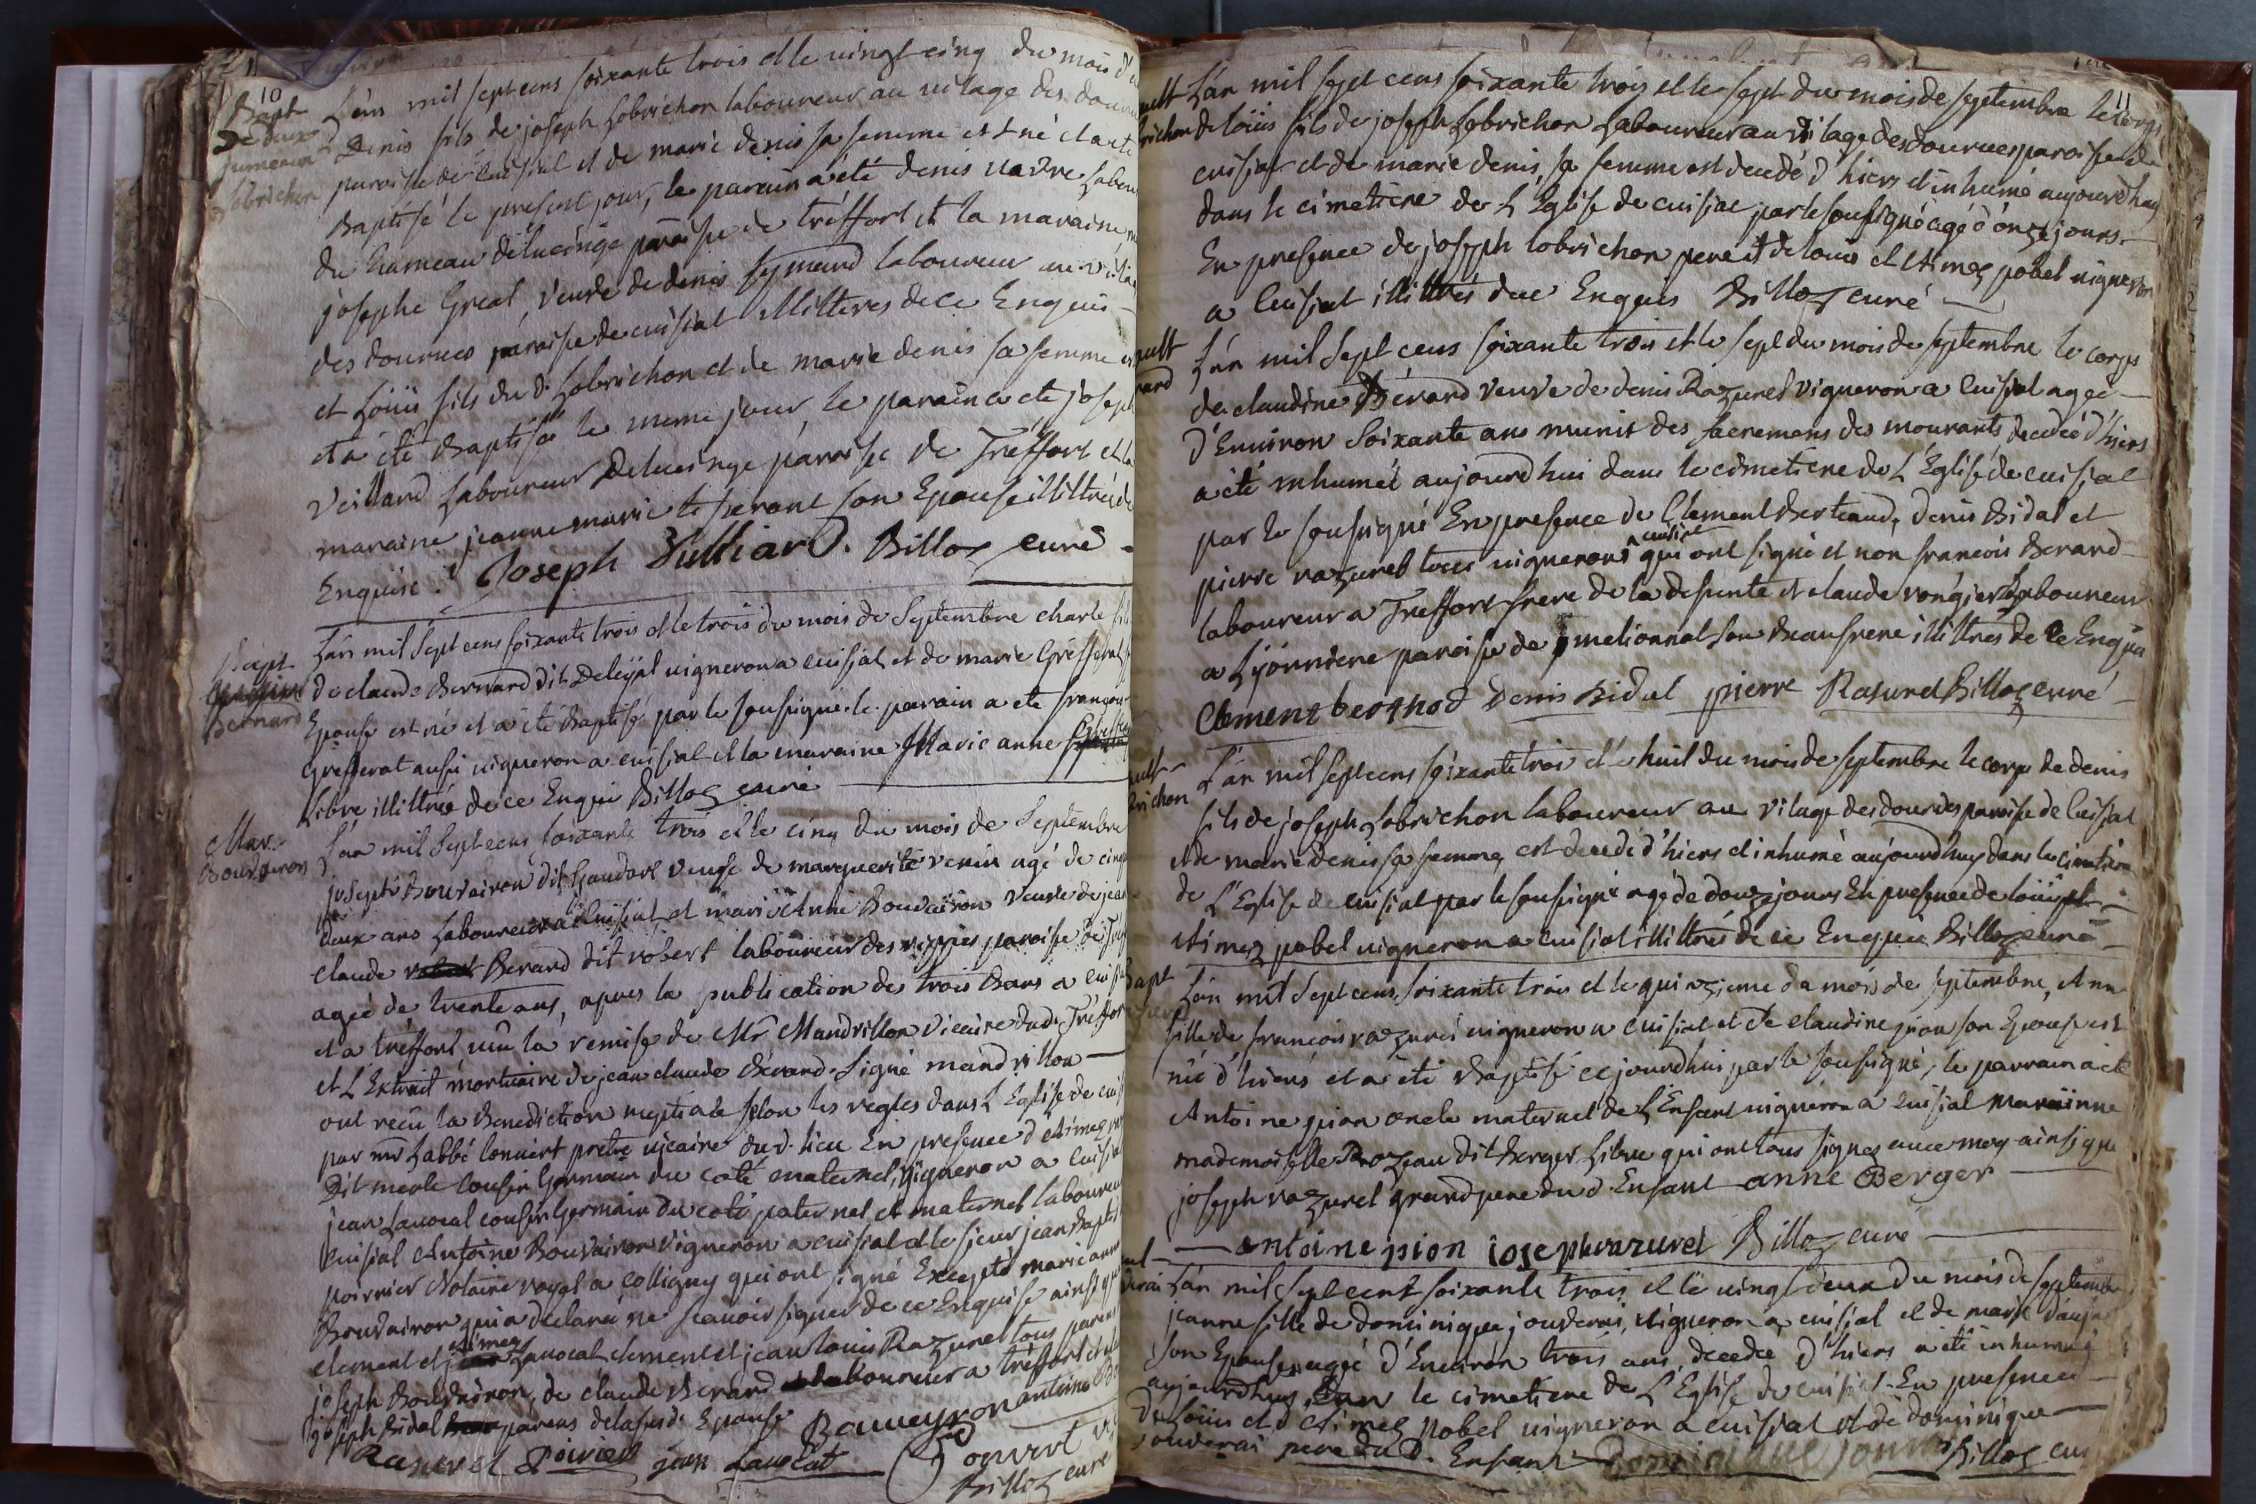 10
Bapt
De deux
jumeaux
Lobrichon
L'an mil sept cens soixante trois et le vingt cinq du mois d'
Denis fils de joseph Lobrichon laboureur au vilage des
paroisse de Cuisiat et de marie denis sa femme est né et a été
Baptisé le present jour, le parain a été denis labou
du hameau de lucinge paroisse de tréffort et la maraine
josephe Greal, veuve de denis laboureur au vila
des dournes paroisse de cuisiat illitteres de ce Enquis
et Loüis fils du d. Lobrichon et de marie denis sa femme
et a été Baptisé le meme jour, le parain a été joseph
Veillard Laboureur de lucinge paroise de Tréffort et la
maraine jeanne marie son Epouse illittrés de
Enquise. Joseph Vulliard. Billoz curé
Bapt
Bernard
L'an mil sept cens soixante trois et le trois du mois de Septembre charle fils
de claude Bernard dit vigneron a cuisiat et de marie Grefferat
Epouse est né et a été Baptisé par le sousigné le parain a été françois
Grefferat aussi vigneron a cuisiat et la maraine Marie anne
libre illittrés de ce Enquis Billoz curé
Mar.
Bouvairon
L'an mil sept cens soixante trois et le cinq du mois de Septembre
joseph Bouvairon dit Gaudard veuf de marguerite agé de cinq
deux ans Laboureur a Cuisiat et marie Anne Bouvairon veuve de jean
claude Berard dit robert laboureur des paroise de
agée de trente ans, apres la publication des trois Bans a
et a tréffort vû la remise de Mr Mandrillon Vicaire dud. Tréffor
et L'Extrait mortuaire de jean claude Berard Signé mandrillon
ont reçu la Benediction nuptiale selon les regles dans L'Eglise de
par mr L'abbé Convert prêtre vicaire dud. lieu En presence d'Aimez
dit merle Cousin Germain du coté maternel, vigneron a Cuisia
jean Lavocat cousin Germain du coté paternel et maternel laboureur
Cuisiat Antoine Bouvairon vigneron a cuisiat et le sieur jean Baptis
poirrier Notaire royal a Colligny qui ont signé Excepté marie anne
Bouvairon qui a declaré ne scavoir signer de ce Enquise ainsi que
clement et Aimez Lavocat clement et jean louis Razurel tous parens
joseph Bouvairon, de claude Berard laboureur a tréffort et
joseph Bidal parens de lad. Epouse Bauveyron antoine
Razurel Poirier jean Lavocat Convert
Billoz curé
11
L'an mil sept cens soixante trois et le sept du mois de septembre le corps
de loüis fils de joseph Lobrichon Laboureur au vilage des dournes paroisse de
cuisiat et de marie denis sa femme est decedé d'hiers et inhumé aujourd'huy
dans le cimetiere de L'Eglise de cuisiat par le sousigné agé d'onze jours
En presence de joseph lobrichon pere et de loüis et Aimez pobel vigneron
a Cuisiat illittrés de ce Enquis Billoz curé
L'an mil sept cens soixante trois et le sept du mois de septembre le corps
de claudine Bérard veuve de denis Razurel vigneron a Cuisiat agée
d'Environ Soixante ans munit des sacremens des mourants decedée d'hiers
a été inhumée aujourd'hui dans le cimetiere de L'Eglise de cuisiat
par le sousigné En presence de Clement Berteaud, denis Bidal et
pierre razurel tous vignerons a cuisiat qui ont signé et non francois Berard
laboureur a Treffort frere de la defunte et claude rongier Laboureur
a Lyonniere paroise de melionnal son Beaufrere illittrés de ce Enquis
Clement berthod Denis Bidal pierre Rasurel Billoz curé
L'an mil sept cens soixante trois et le huit du mois de septembre le corps de denis
fils de joseph Lobrichon laboureur au vilage des dournes paroisse de Cuisiat
et de marie denis sa femme, est decedé d'hiers et inhumé aujourd'huy dans le cimetiere
de L'Eglise de cuisiat par le sousigné agé de douze jours En presence de loüis et
Aimez pobel vigneron a cuisiat illittrés de ce Enquis Billoz curé
Bapt
L'an mil sept cens soixante trois et le quinzieme du mois de septembre, Anne
fille de francois razurel vigneron a cuisiat et de claudine pion son Epouse est
née d'hiers et a été Baptisé ce jourd'hui par le sousigné, le parrain a été
Antoine pion oncle maternel de L'Enfant vigneron a cuisiat maraiinne
mademoiselle dit Berger Libre qui ont tous signés avec moy ainsi que
joseph razurel grand pere du d. Enfant anne Berger
antoine pion ioseph razurel Billoz curé
L'an mil sept cent soixante trois et le vingt deux du mois de septembre
jeanne fille de dominique jouverai, vigneron a cuisiat et de marie
son Epouse agée d'Environ trois ans, decedée d'hiers a été inhumée
aujourdhuy dans le cimetiere de L'Eglise de cuisiat. En presence
de loüis et d'Aimez pobel vigneron a cuisiat et de dominique
jouverai pere du D. Enfant Dominique Billoz cu